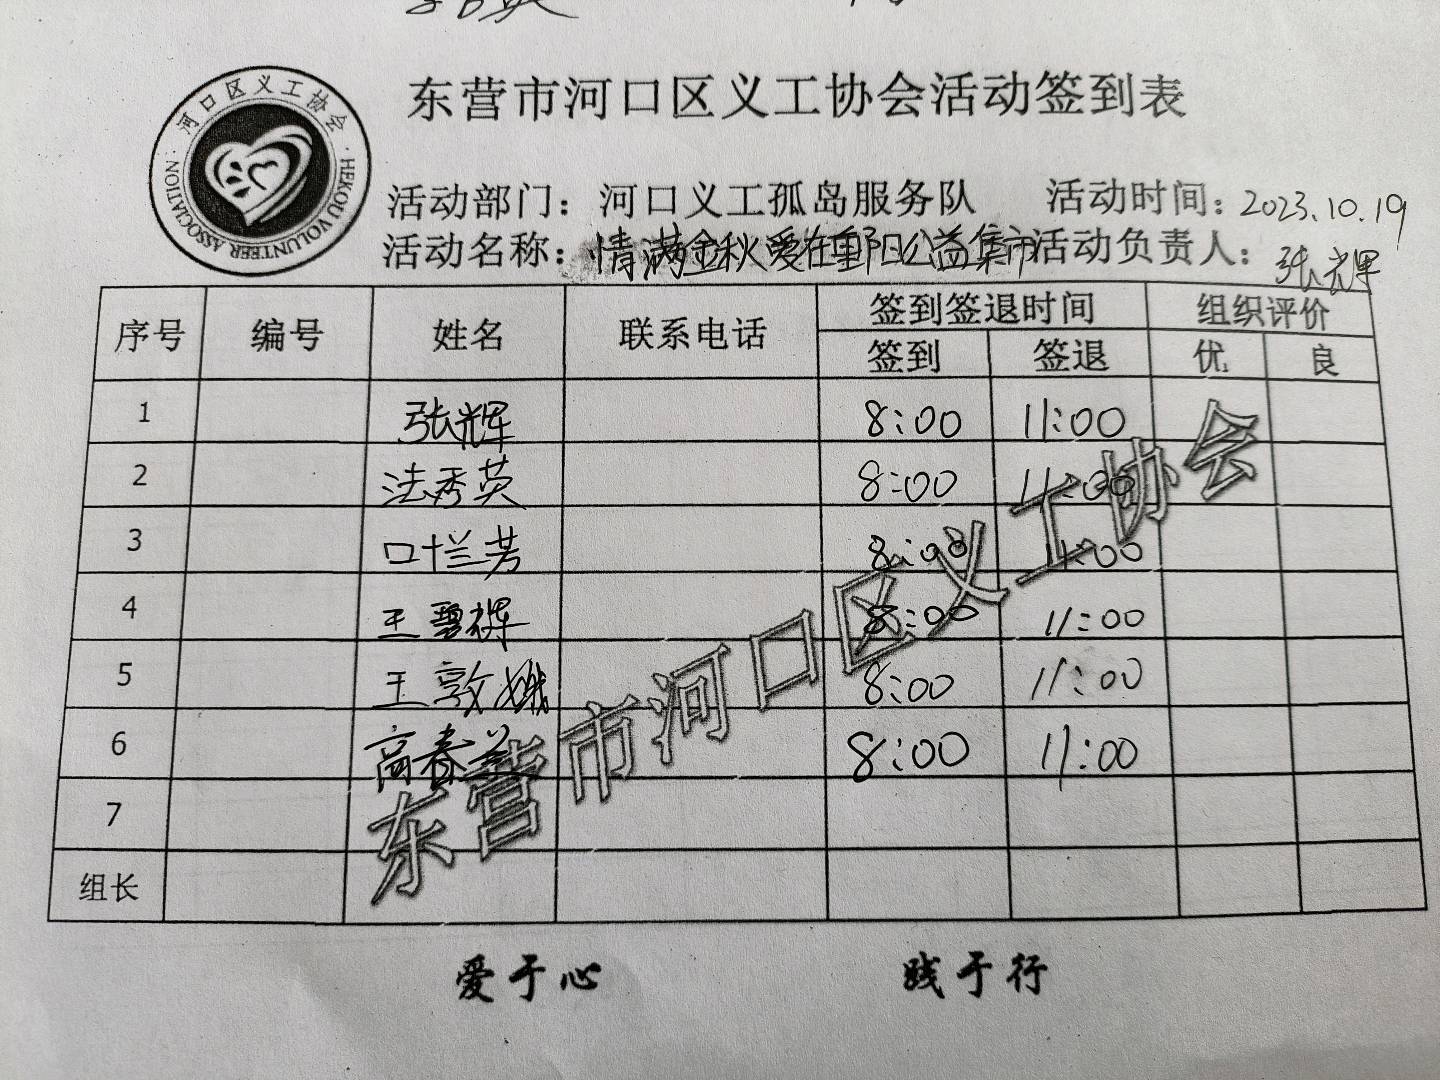 河口区义工协会
HEKOU VOLUNTEER ASSOCIATION
东营市河口区义工协会活动签到表
活动部门：河口义工孤岛服务队 活动时间：2023.10.19
活动名称：情满金秋爱在重阳公益集市 活动负责人：张辉
序号 编号 姓名 联系电话 签到签退时间 组织评价
签到 签退 优 良
1 张辉 8:00 11:00
2 法秀英 8:00 11:00
3 兰芳 8:00 11:00
4 王 8:00 11:00
5 王敦娥 8:00 11:00
6 高春兰 8:00 11:00
7
组长
东营市河口区义工协会
爱于心 践于行